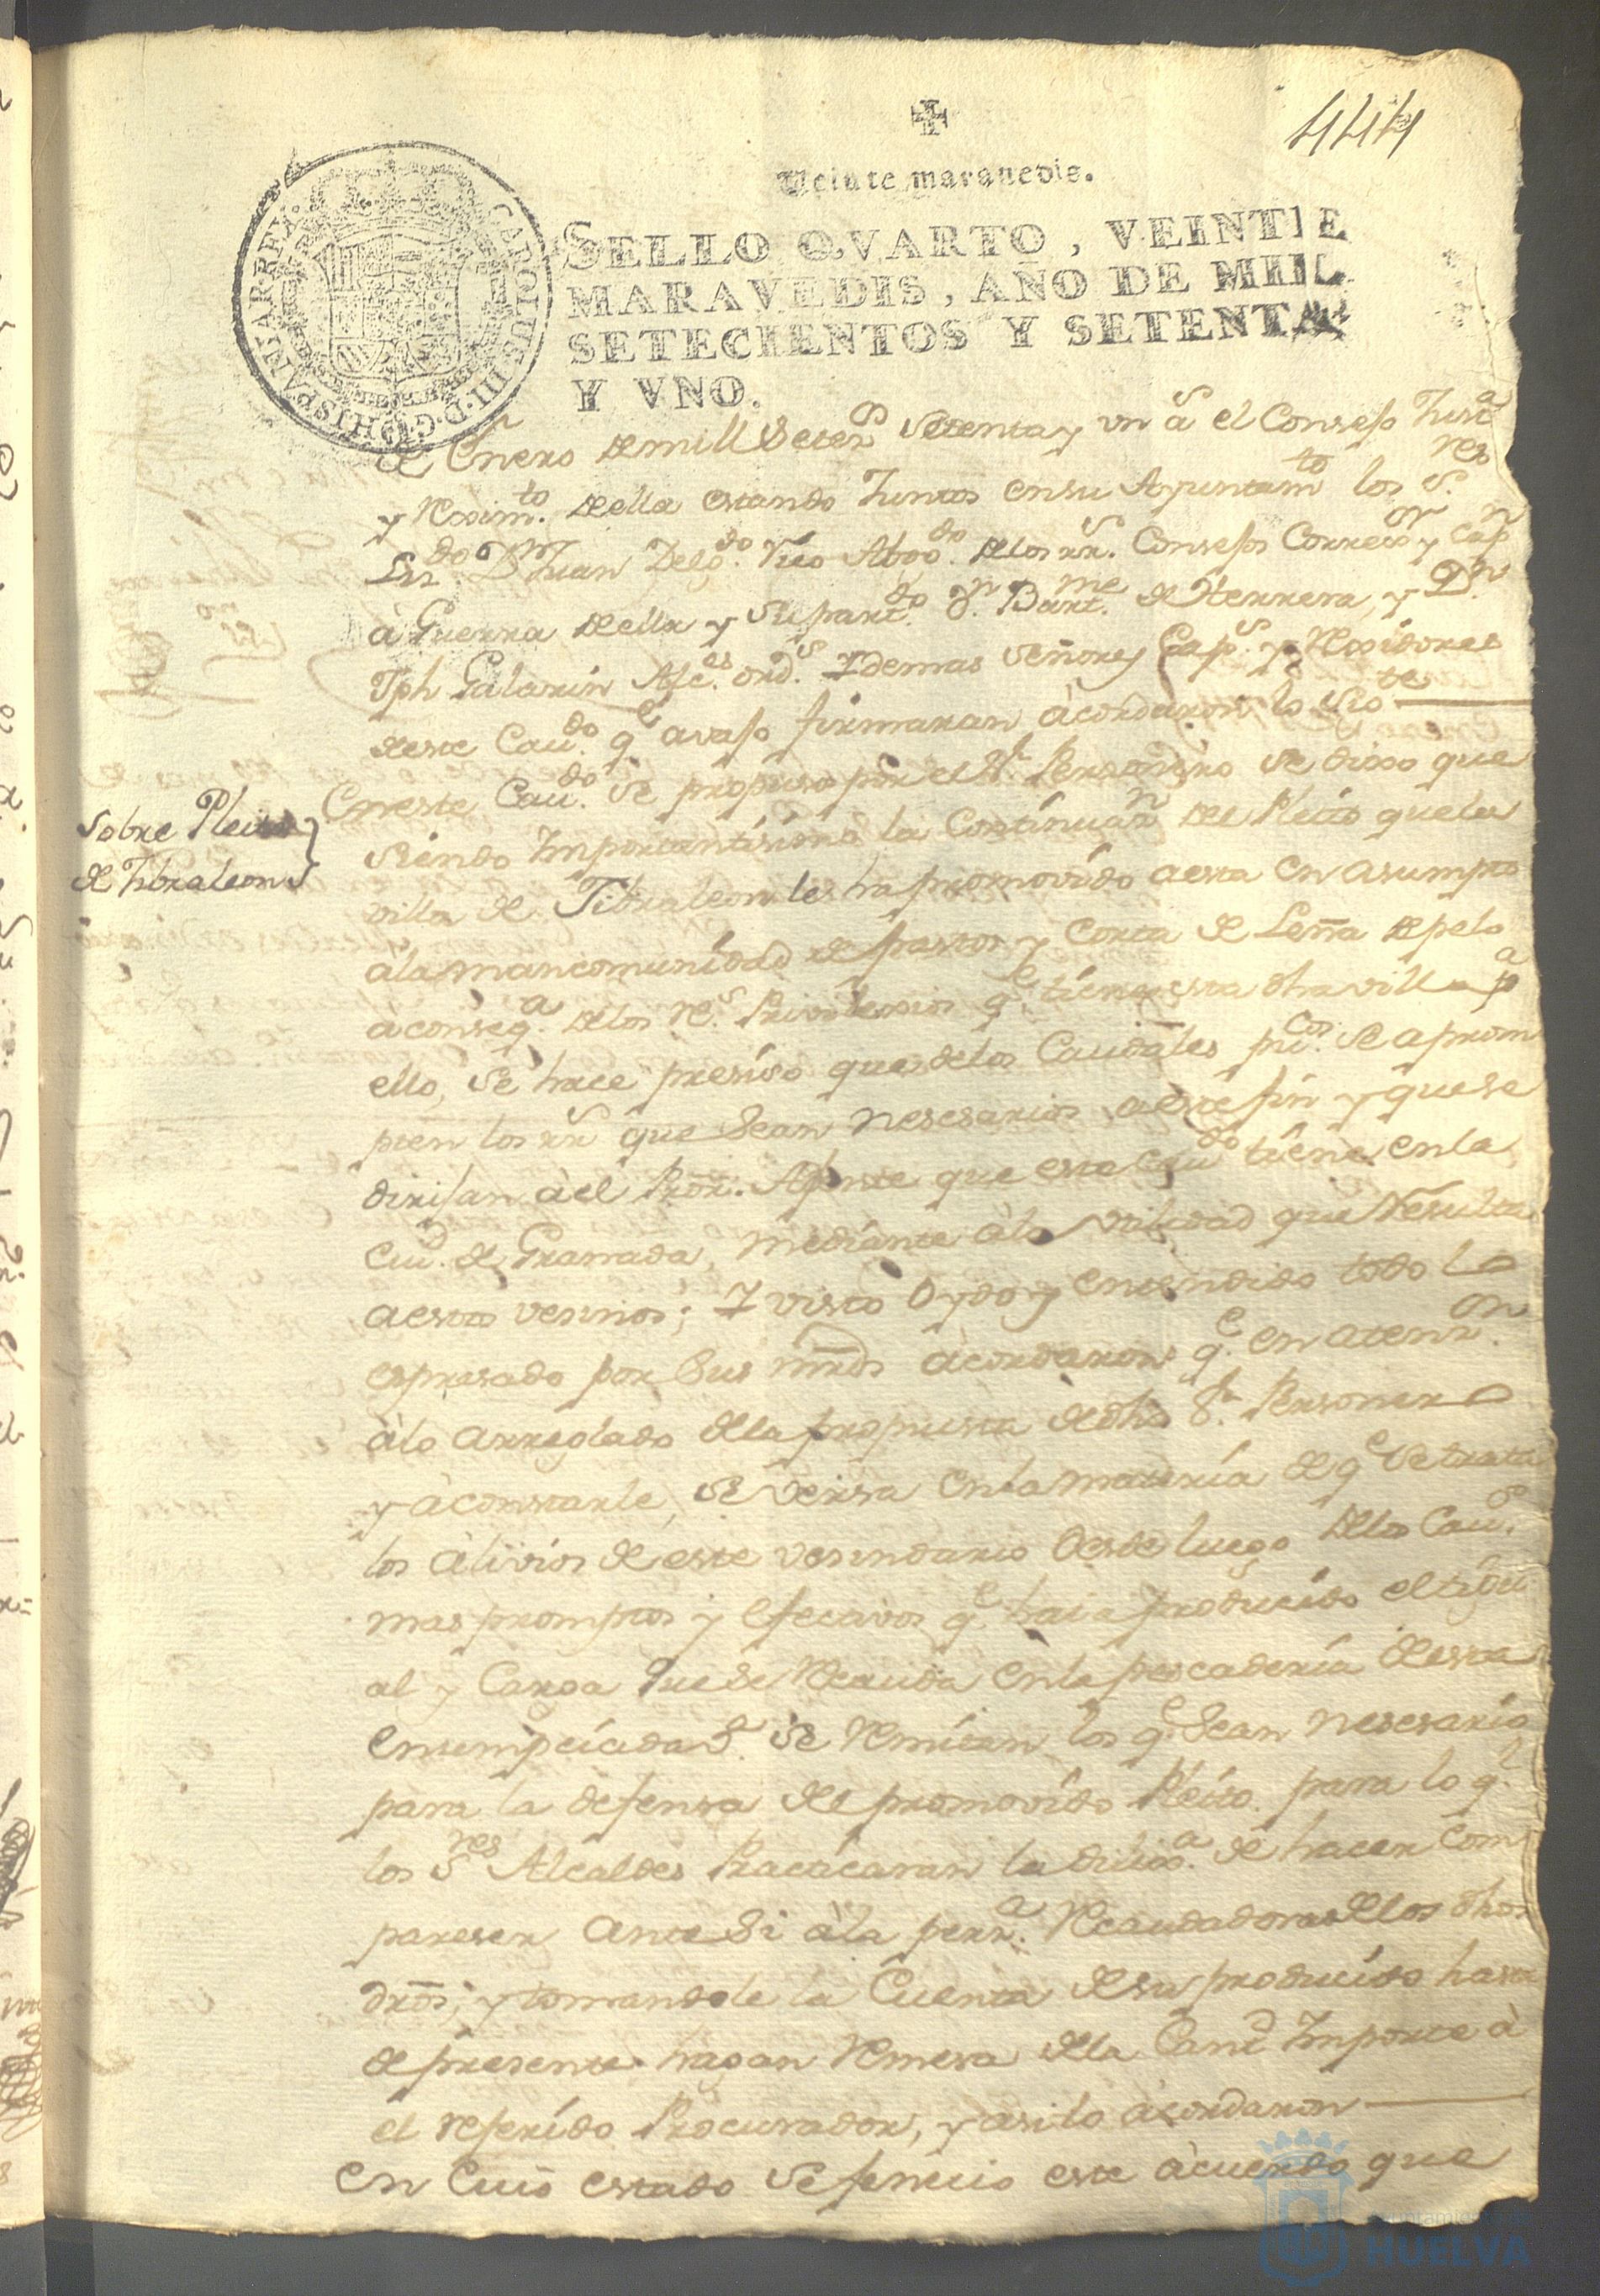 444
Veinte maravedis.
SELLO QVARTO, VEINTE
MARAVEDIS, AÑO DE MIL
SETECIENTOS Y SETENTA
Y VNO.
CAROLUS III D.G. HISPANIAR. REX
de Enero de mill Setez.s Setenta y un a.s el Consejo Just.a
y Reximt.to de ella estando Juntos en su Ayuntam.to los S.res
Liz.do D.n Juan Delg.do Abog.do de los R.s Consejos Correx.or y Cap.n
à Guerra de ella y su part.do D.n Bart.me de Herrera, y D.n
Jph Galarin Alc.es ord.s Y demas Señores Cap.s y Rexidores
de este Cau.do q.e avajo firmaran àcordaron lo sig.te
Sobre Pleito
de Jibraleon
En este Cau.do se propuso por el S.r Personero se dixo que
siendo Importantisima la Continuaz.n del Pleito que la
villa de Jibraleon les ha promovido a esta en asumpto
àla mancomunidad de pastos y corta de Leña de pelo
à conseq.a de los R.s Privilexios q.e tiene esta dha villa p.a
ello, se hace presiso que de los Caudales pu.cos se aprom
pten los rr.s que sean nesesarios a este fin y que se
dirijan àel Pror. Ajente que este Cau.do tiene en la
Ciu.d de Granada, mediante àla utilidad que Resulta
a estos vesinos; Y visto Oydo y entendido todo lo
espresado por Sus mrds àcordaron q.e en atenz.on
àlo arreglado de la propuesta de dho S.r Personero
y àconstarle, se versa en la materia de q.e se trata
los àlivios de este vesindario desde luego de los Cau.s
mas promptos y efectivos q.e haia producido el
al y Carga que se Recauda en la pescaderia de esta
se Remitan los q.e Sean nesesarios
para la defensa del promovido Pleito. para lo q.l
los S.res Alcaldes Practicaran la dilig.a de hacer com
pareser ante Si àla pers.a Recaudadora de los dhos
dros; y tomandole la Cuenta de su producido hasta
de presente hagan Remesa de la Cant.d Importe à
el referido Procurador, y asi lo àcordaron
En Cuio estado se fenecio este àcuerdo que
HUELVA